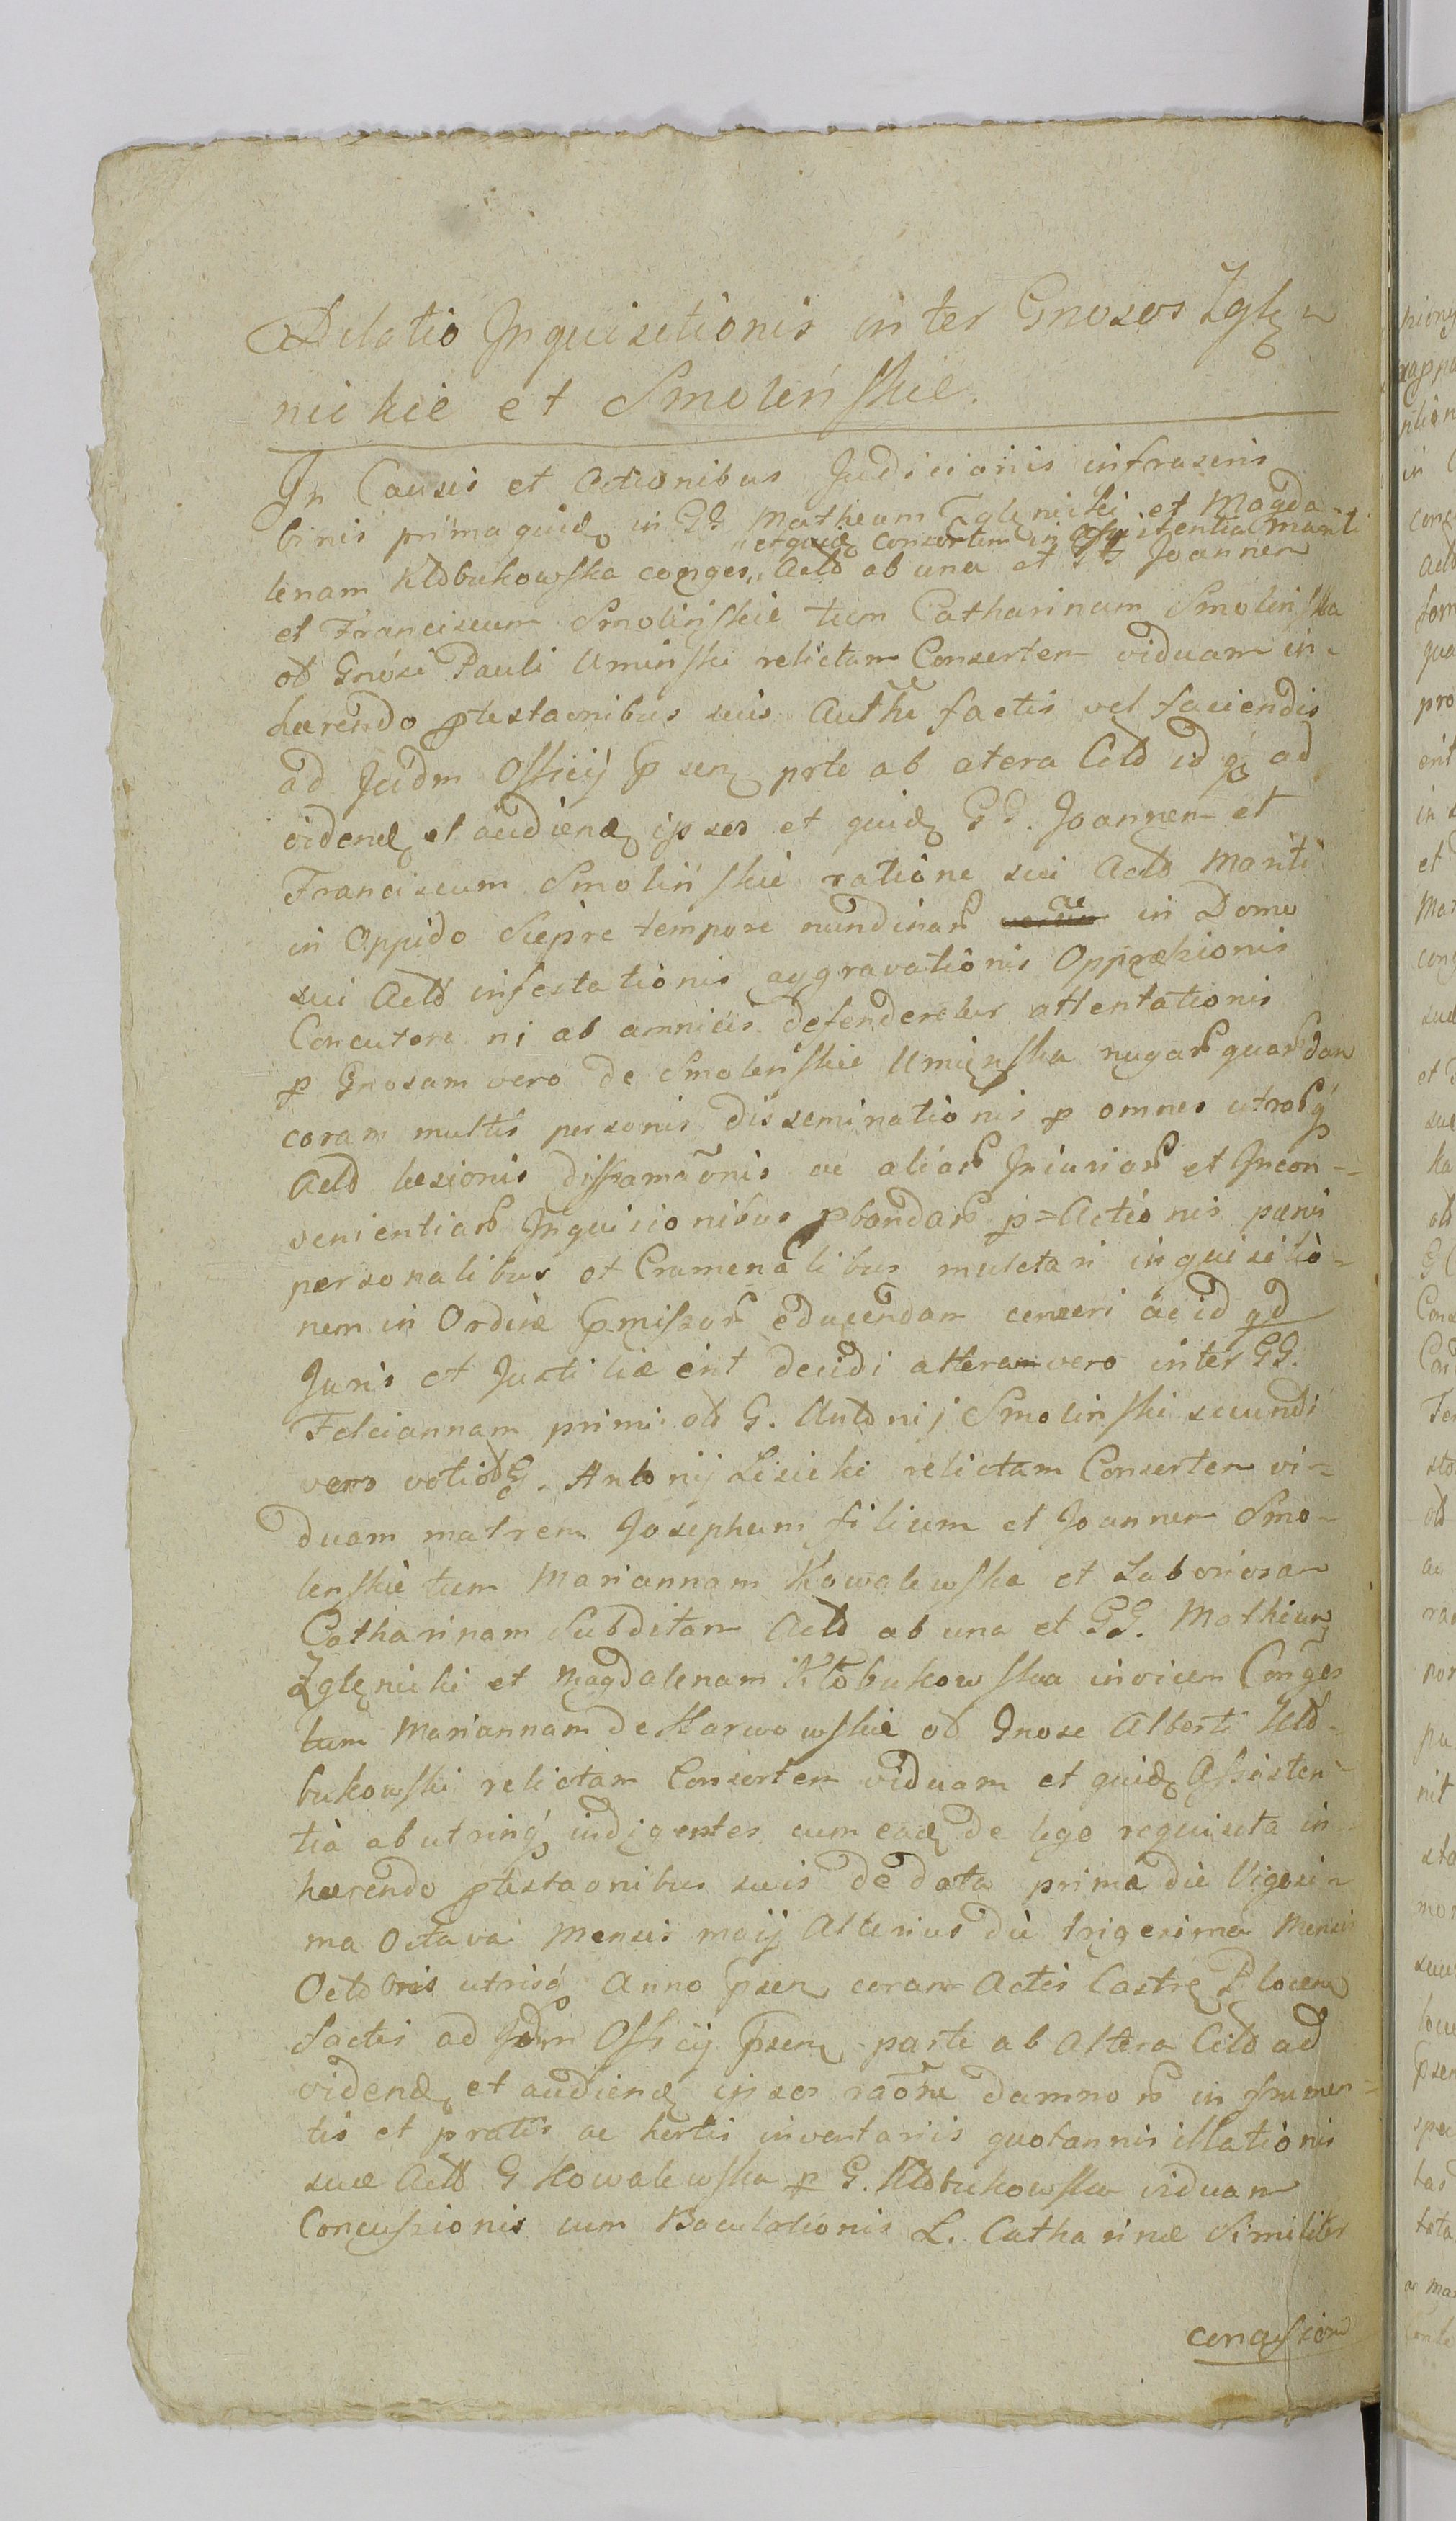 Relatio Inquisitionis inter Gnosos Zglę-
nickie et Smoleńskie.
In Causis et Actionibus Judicionis infrascris
binis prima quidę in GG Matheum Zglęnicki et Magda-
,,et quidę Consortem in Assistentia Mariti
lenam Kłobukowska conges,, Actō ab una et GG Joannem
et Franciscum Smolińskie tum Catharinam Smolinska
ol Gnosi Pauli Uminski relictam Consortem viduam in-
hærendo ptestaonibus suis Authe factis vel faciendis
ad Judm Officij psen prte ab atera Citō id q ad
videnđ et audienđ ipsos et quidę GG. Joannem et
Franciscum Smolińskie ratione sui Actō Mariti
in Oppido Siepre tempore nundinar ac in Domo
sui Actō infestationis aggravationis Oppræssionis
Concutere ni ab amnicis defenderetur attentationis
p Gnosam vero de Smolenskie Uminska nugar quardam
coram multis personis disseminationis p omnes utrosq
Actō læsionis diffamãonis ac aliar Iniuriar et Incon-
venientiar Inquisionibus pbandar p=Actionis pænis
personalibus et Cramenalibus mulctari inquisitio-
nem in Ordine pmissor educendam censeri ac id qd
Juris et Justitiæ erit decidi alteram vero inter GG.
Feliciannam primi ol G. Antonij Smolinski secundi
vero voti ol G. Antonij Lisicki relictam Consortem vi-
duam matrem Josephum filium et Joannem Smo-
lenskie tum Mariannam Kowalewska et Laboriosam
Catharinam Subditam Actō ab una et GG. Mathium
Zglęnicki et Magdalenam Kłobukowska invicem Conges
tum Mariannam de Karwowskie ol Gnose Alberti Kło-
bukowski relictam Consortem viduam et quidę Assisten-
tia ab utrinq indigentes cum eadę de lege requisita in-
hærendo ptestaonibus suis de data prima die Vigesi-
ma Octava Mensis maij Alterius die trigesima Mensis
Octobris utrisq Anno psen coram Actis Castrę Plocen
factis ad Jdm Officij psen parte ab Altera Citō ad
videnđ et audienđ ipsos raõne damnor in frumen-
tis et pratis ac hortis inventariis quotannis illationis
suæ Actō G Kowalewska p G. Kłobukowska viduam
Concussionis cum Baculationis L. Catharinæ Similiter
concussion